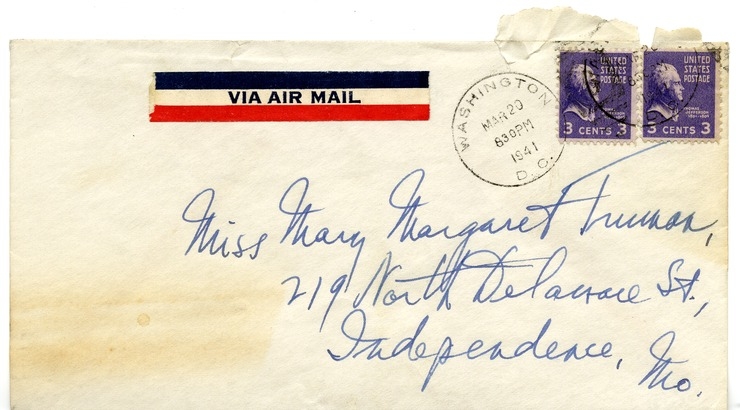 VIA AIR MAIL
WASHINGTON
MAR 20
830 PM
1941
D. C.
UNITED
STATES
POSTAGE
3 CENTS 3
UNITED
STATES
POSTAGE
THOMAS
JEFFERSON
1801-1809
3 CENTS 3
Miss Mary Margaret Truman,
219 North Delaware St.,
Independence, Mo.